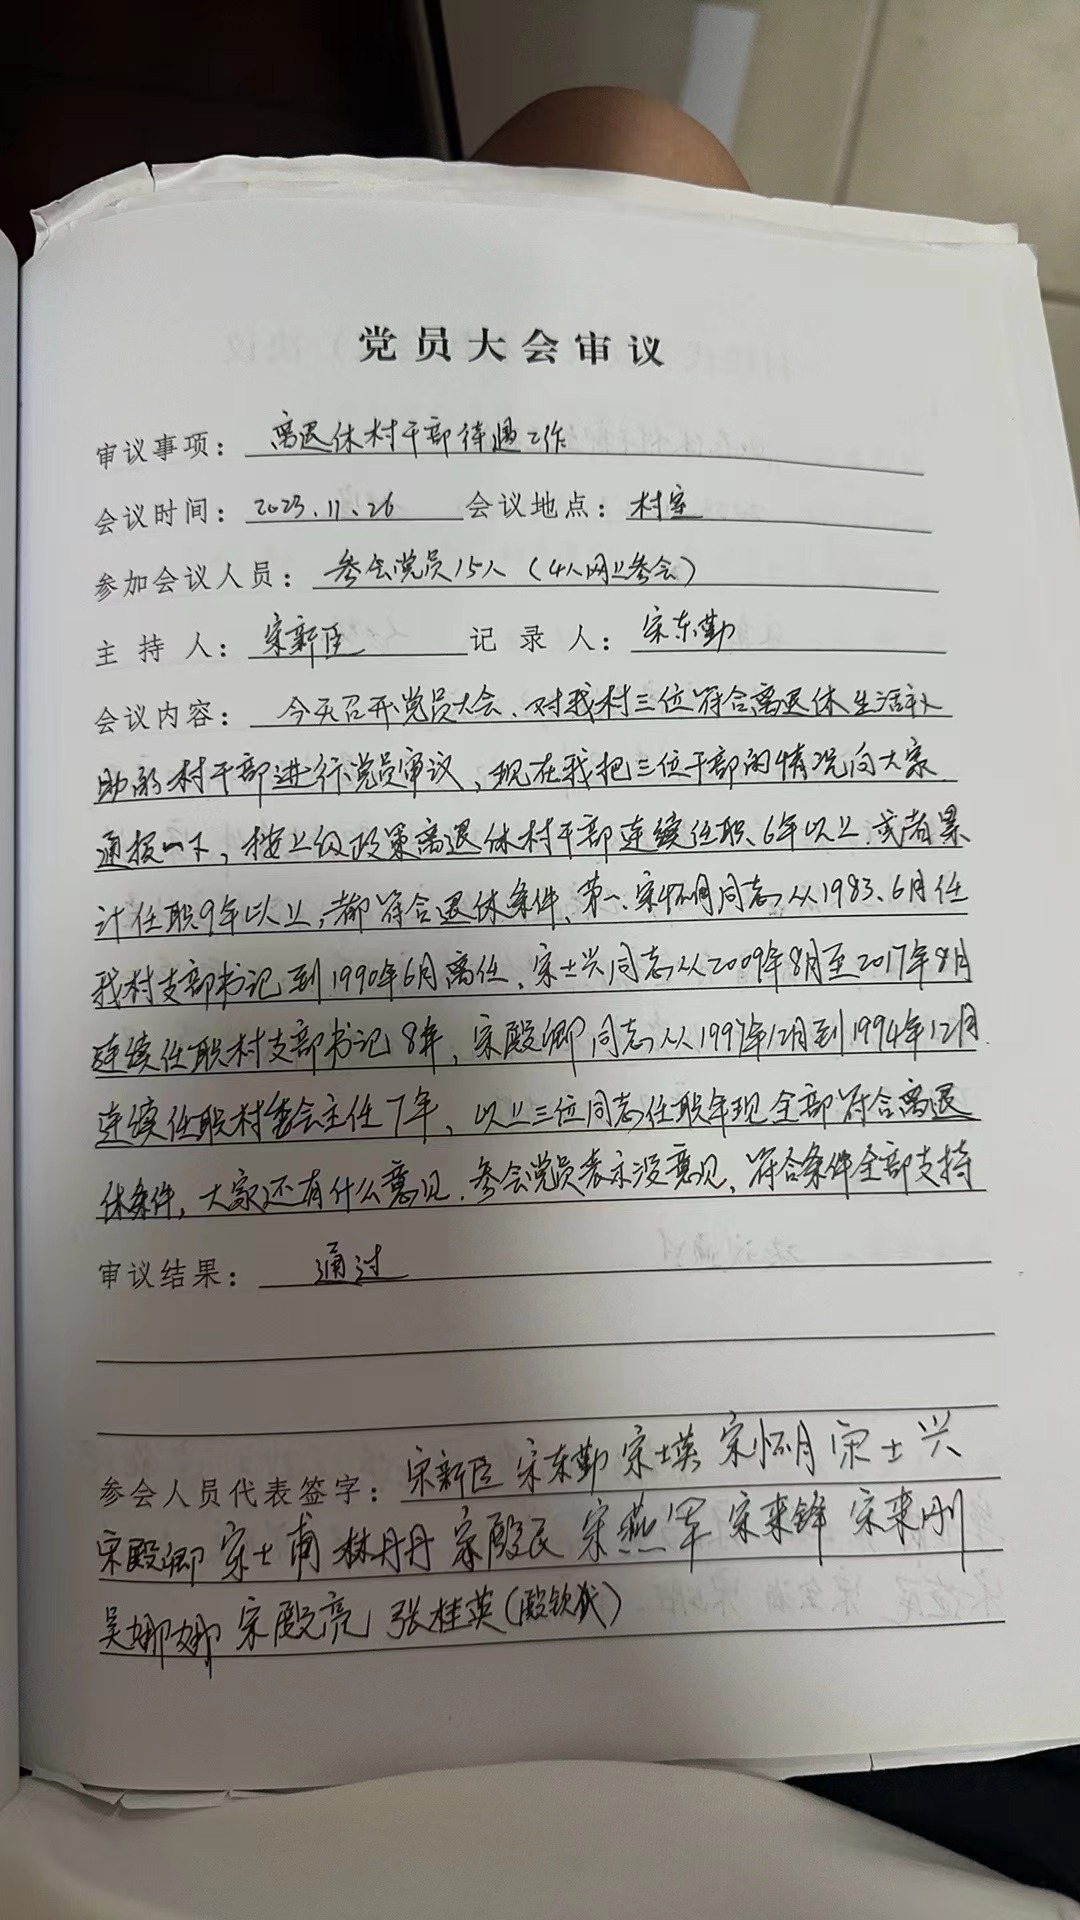 党员大会审议
审议事项：离退休村干部待遇工作
会议时间：2023.11.26 会议地点：村室
参加会议人员：参会党员15人（4人网上参会）
主持人：宋新臣 记录人：宋东勤
会议内容：今天召开党员大会、对我村三位符合离退休生活补
助的村干部进行党员审议，现在我把三位干部的情况向大家
通报一下，按上级政策离退休村干部连续任职6年以上或者累
计任职9年以上，都符合退休条件、第一、宋怀月同志从1983.6月任
我村支部书记到1990年6月离任、宋士兴同志从2009年8月至2017年8月
连续任职村支部书记8年，宋殿卿同志从1997年12月到1994年12月
连续任职村委会主任7年，以上三位同志任职年现全部符合离退
休条件，大家还有什么意见．参会党员表示没意见、符合条件全部支持
审议结果：通过
参会人员代表签字：宋新臣 宋东勤 宋士英 宋怀月 宋士兴
宋殿卿 宋士甫 林丹丹 宋殿民 宋燕军 宋来锋 宋来刚
吴娜娜 宋殿亮 张桂英（殿钦代）